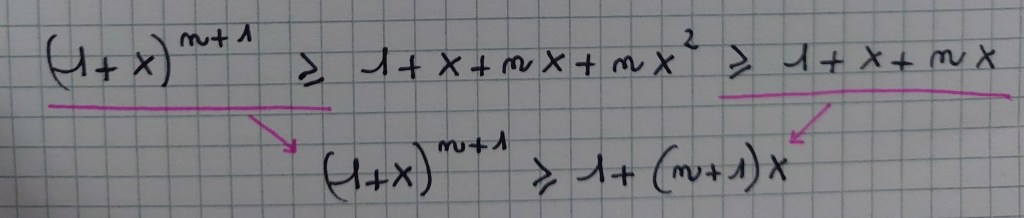 (1+x)^{n+1} ≥ 1+x+nx+nx² ≥ 1+x+nx
(1+x)^{n+1} ≥ 1+(n+1)x